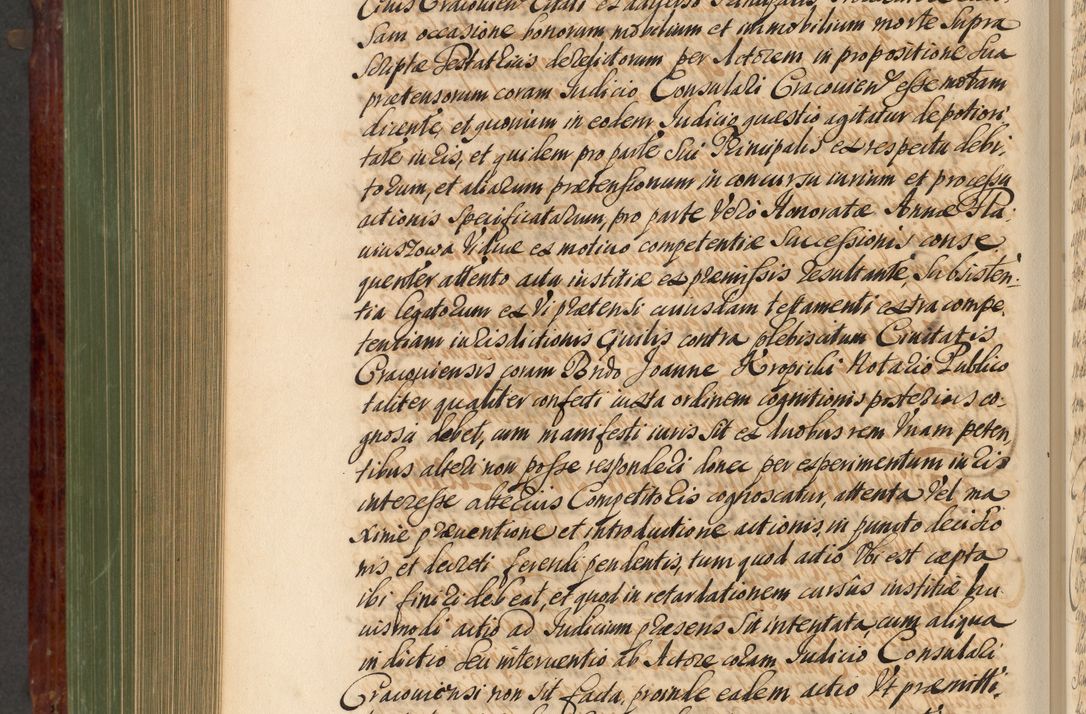 sam occasione bonorum mobilium et immobilium morte supra
scriptæ Testatricis derelictorum per Actorem in propositione sua
prætensorum coram Judicio Consulari Cracovien esse motam
dicente, et quonium in eodem Judicio quæstio agitatur de potiori,
tate iuris, et quidem pro parte sui Principalis ex respectu debi,
torum, et aliarum prætensionum in concursu iurium et processu
actionis specificatarum, pro parte vero Honoratæ Annæ Pla,
wiuszowa Viduæ ex motivo competentiæ successionis conse
quenter attento actu iustitiæ ex præmissis resultante, subsisten,
tia legatorum ex vi prætensi cuiusdam testamenti extra compe,
tentiam iurisdictionis Civilis contra plebiscitum Civitatis
Cracoviensis coram Pndo Joanne Kropichi Notario Publico
taliter qualiter confecti iuxta ordinem cognitionis posterioris co-
gnosci debet, cum manifesti iuris sit ex duobus rem unam peten
tibus alteri non posse responderi donec per experimentum iuris
interesse alterius Competitoris cognoscatur, attenta vel ma
xime præventione et introductione actionis, in puncto decisio
nis et decreti ferendi pendentis, tum quod actio ubi est cæpta
ibi finiri debeat, et quod in retardationem cursûs iustitiæ hu
iusmodi actio ad Judicium præsens sit intentata, cum aliqua
indictio seu interventio ab Actore coram Judicio Consulari
Cracoviensi non sit facta, proinde eadem actio ut præmitti,